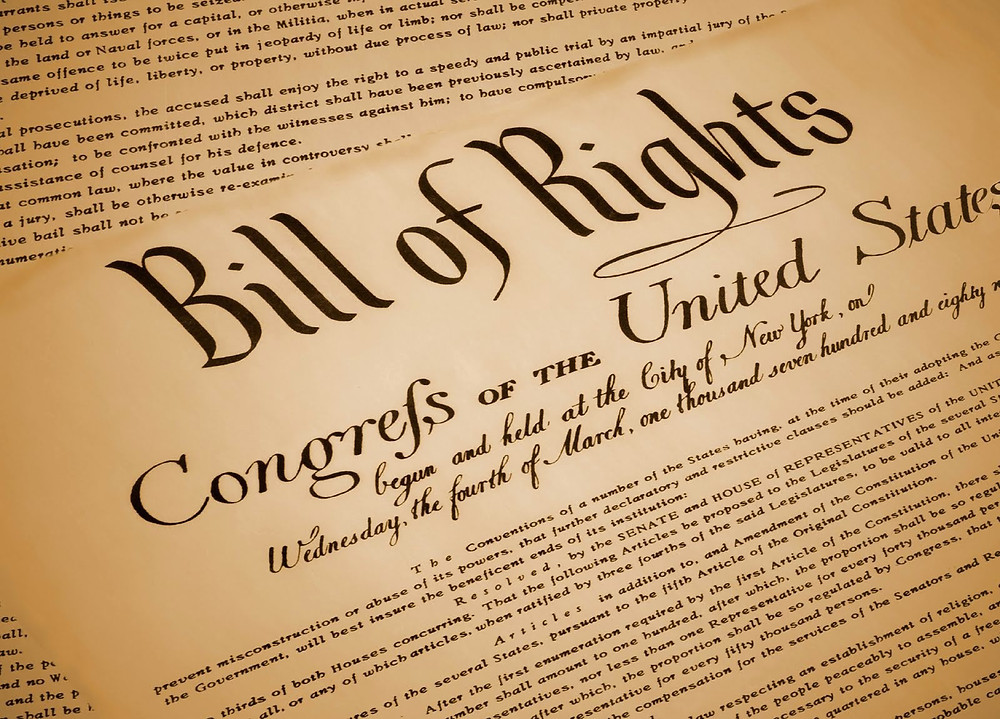 persons or things to be seized
be held to answer for a capital, or otherwise
the land or Naval forces, or in the Militia, when in actual
same offence to be twice put in jeopardy of life or limb; nor shall be
deprived of life, liberty, or property, without due process of law; nor shall private property
prosecutions, the accused shall enjoy the right to a speedy and public trial by an impartial jury of the
shall have been committed, which district shall have been previously ascertained by law,
to be confronted with the witnesses against him; to have
assistance of counsel for his defence.
at common law, where the value in controversy
a jury, shall be otherwise
bail shall not be
Bill of Rights
Congreſs OF THE United States
begun and held at the City of New York, on
Wednesday, the fourth of March, one thousand seven hundred and eighty
The Conventions of a number of the States having, at the time of their adopting the
prevent misconstruction or abuse of its powers, that further declaratory and restrictive clauses should be added: And
the Government, will best insure the beneficent ends of its institution:
Resolved, by the SENATE and HOUSE of REPRESENTATIVES of the
thirds of both Houses concurring. That the following Articles be proposed to the Legislatures of the several
all, or any of which articles, when ratified by three fourths of the said Legislatures, to be valid to all
Articles in addition to, and Amendment of the Constitution of the
of the several States, pursuant to the fifth Article of the Original Constitution.
After the first enumeration required by the first Article of the Constitution, there
shall amount to one hundred, after which, the proportion shall be so
nor less than one Representative for every forty thousand
after which, the proportion shall be so regulated by Congress, that
for every fifty thousand persons.
compensation for the services of the Senators and
respecting an establishment of religion,
the people peaceably to assemble, and
to the security of a free
quartered in any house,